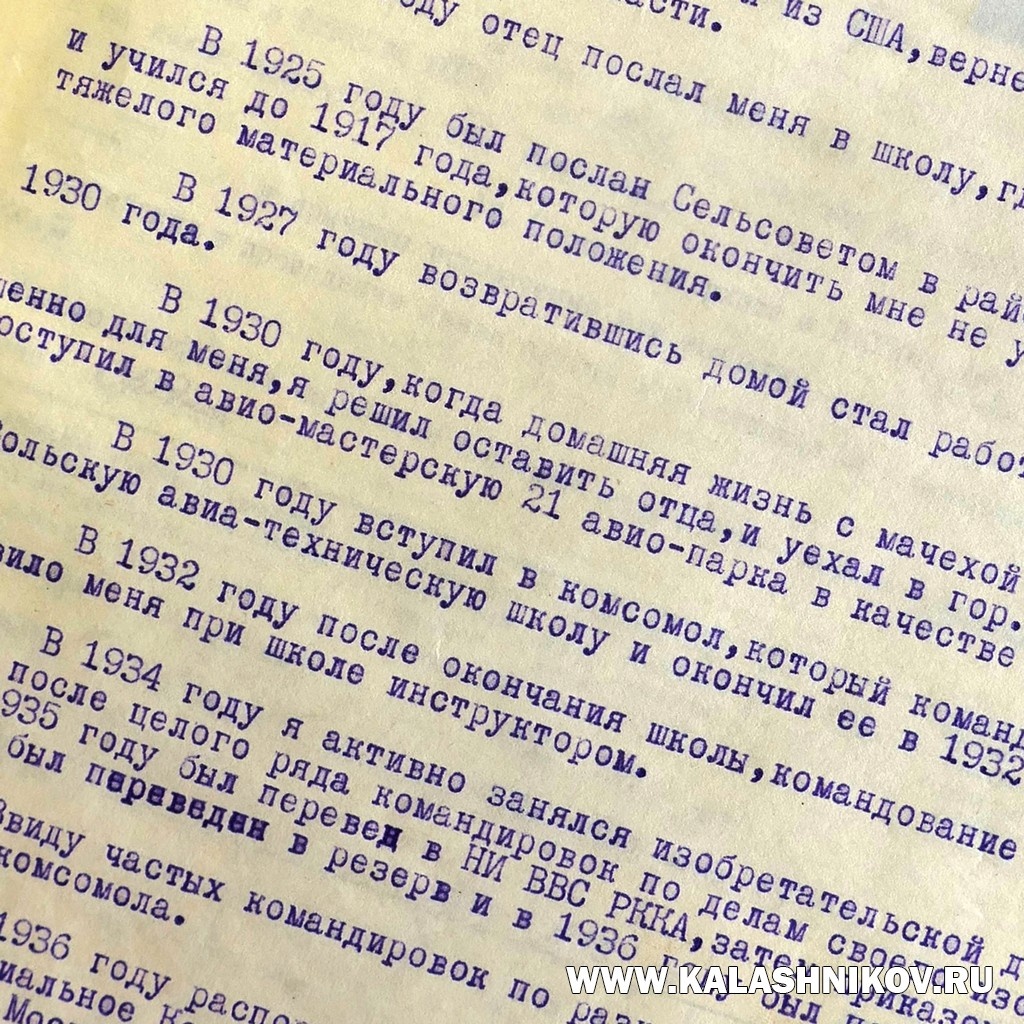 из США,верне
асти.
оду отец послал меня в школу,гд
В 1925 году был послан Сельсоветом в рай
и учился до 1917 года,которую окончить мне не у
тяжелого материального положения.
В 1927 году возвратившись домой стал работ
1930 года.
В 1930 году,когда домашняя жизнь с мачехой
енно для меня,я решил оставить отца,и уехал в гор.
оступил в авио-мастерскую 21 авио-парка в качестве
В 1930 году вступил в комсомол,который команд
ольскую авиа-техническую школу и окончил ее в 1932
В 1932 году после окончания школы,командование
вило меня при школе инструктором.
В 1934 году я активно занялся изобретательской д
после целого ряда командировок по делам своего изо
935 году был перевед в НИ ВВС РККА,затем приказом
был переведен в резерв и в 1936 году был
Ввиду частых командировок по раз
комсомола.
1936 году распо
иальное
WWW.KALASHNIKOV.RU